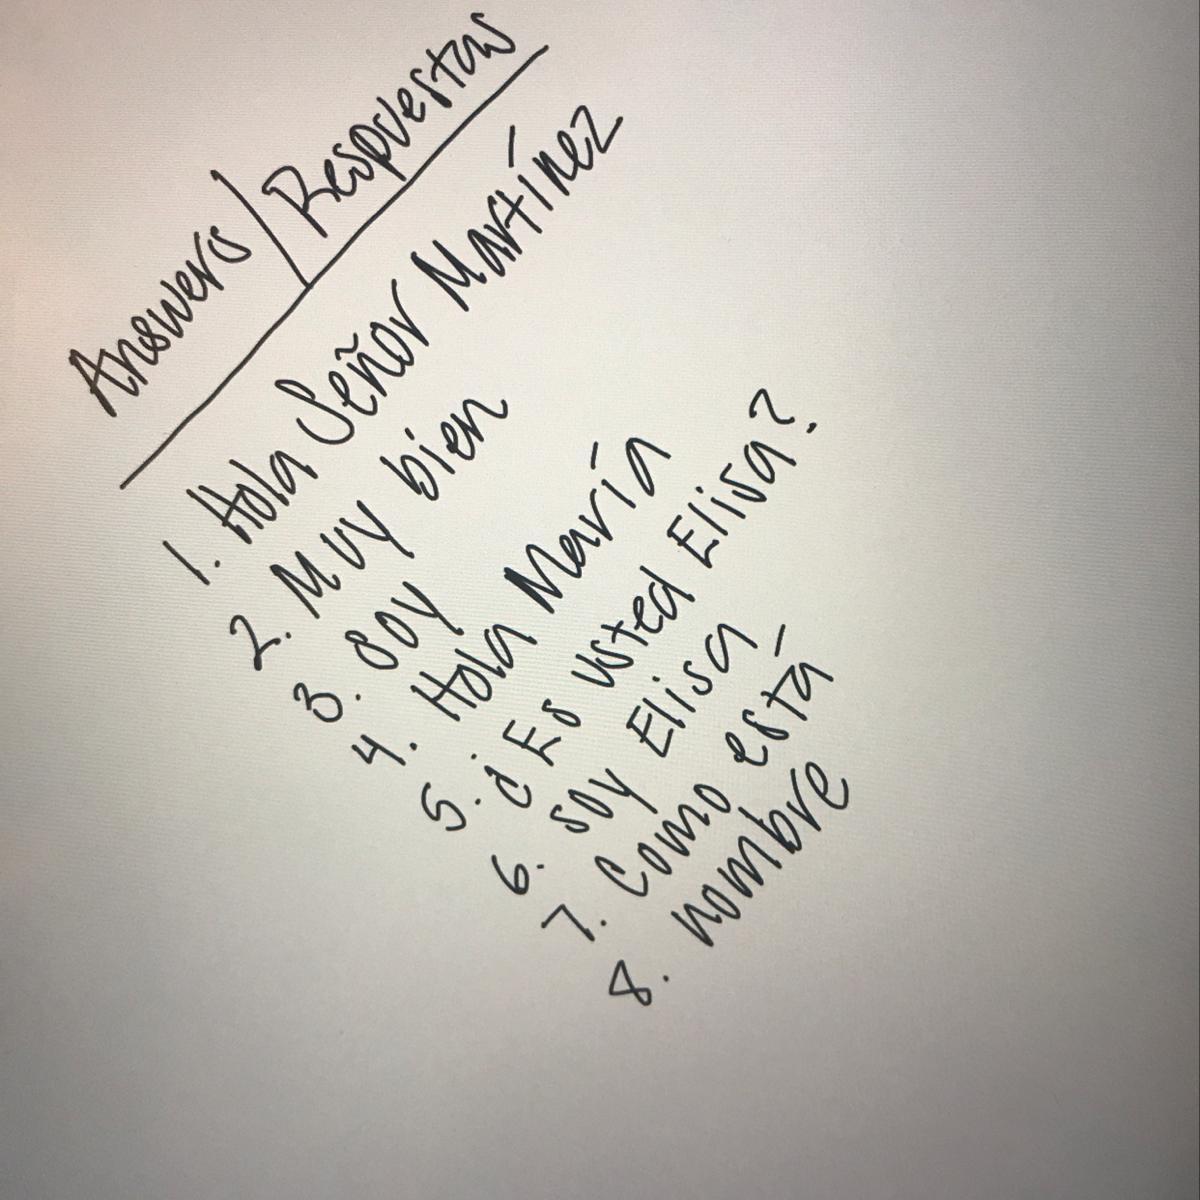 Answers/Respuestas
1. Hola Señor Martínez
2. Muy bien
3. soy
4. Hola María
5. ¿Es usted Elisa?
6. soy Elisa
7. Como está
8. nombre